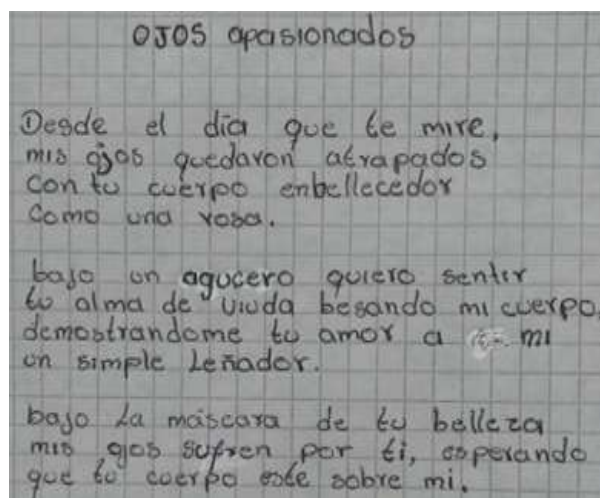 OJOS apasionados
Desde el día que te mire,
mis ojos quedaron atrapados
con tu cuerpo enbellecedor
como una rosa.
bajo un agucero quiero sentir
tu alma de viuda besando mi cuerpo,
demostrandome tu amor a mi
un simple Leñador.
bajo La máscara de tu belleza
mis ojos sufren por ti, esperando
que tu cuerpo este sobre mi.